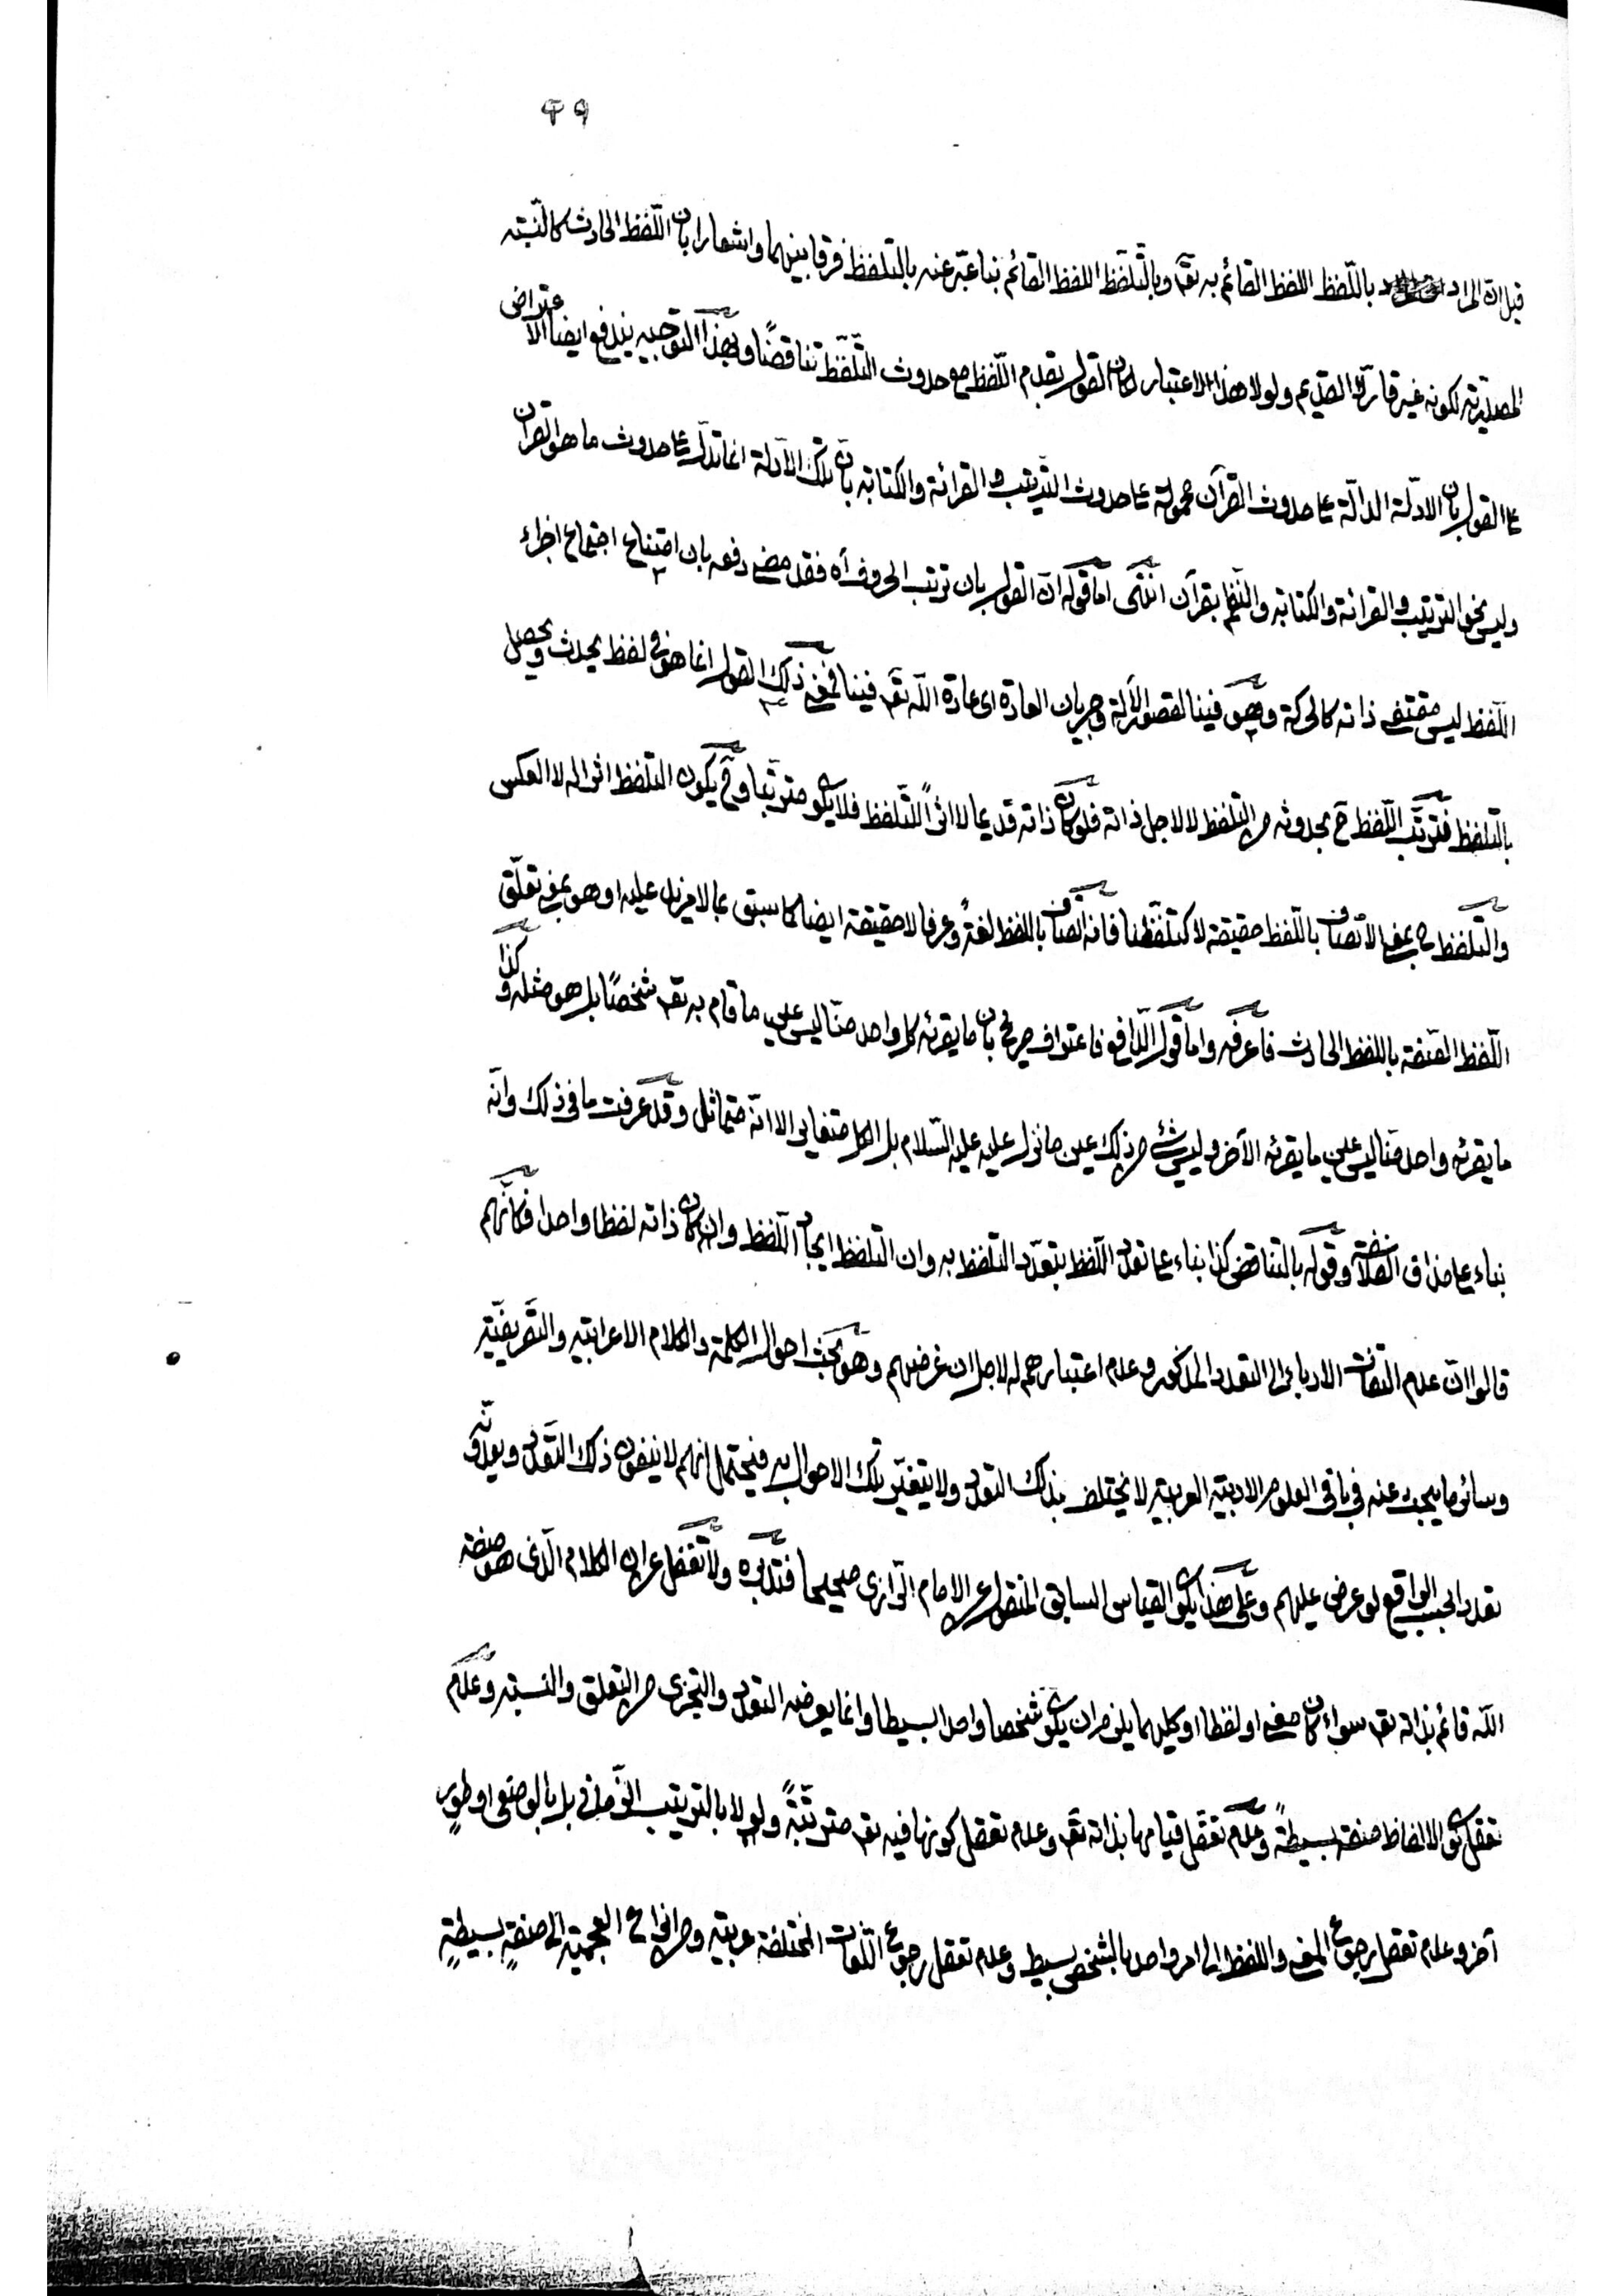 ٤٩
قيل ان المراد باللّفظ اللفظ القائم به تعَ وبالتّلفّظ اللفظ القائم بنا عبّر عنه بالتلفظ فرقا بينهما واشعارا بان اللّفظ الحادث كالنسبة
المصدرية لكونه غير قارّ كا القديم ولولا هذا الاعتبار لكان القول بقدم اللّفظ مع حدوث التّلفّظ تناقضًا وبهذا التوجيه يندفع ايضا الاعتراض
على القول بان الادلّة الدالّة على حدوث القرآن محمولة على حدوث الترتيب والقرائة والكتابة بان تلك الادلة انما تدل على حدوث ما هو القرآن
وليس نحو الترتيب والقرائة والكتابة والنظم بقرآن انتهى اما قوله ان القول بان ترتب الحروف اه فقد مضى دفعه بان امتناع اجتماع اجزاء
اللّفظ ليس مقتضى ذاته كالحركة وهو فينا لقصور الآلة وجريان العادة اى عادة اللّه تعَ فينا فمعنى ذلك القول انما هو فى لفظ يحدث ويحصل
بالتلفظ فترتّب اللّفظ ح بحدوثه من التلفظ لا لاجل ذاته فلو كان ذاته قديما لا اثرًا للتّلفظ فلا يكون مترتّبا وح يكون التلفظ اثرا له لا العكس
والتّلفظ ح بمعنى الاتّصاف باللّفظ حقيقة لا كتلفّظنا فانه اتّصاف باللفظ لغةً وعرفا لا حقيقة ايضا كما سبق بما لا مزيد عليه او هو بمعنى تعلّق
اللّفظ الصفة باللفظ الحادث فاعرفه واما قول الدّافع فاعتراف صريح بان ما يقرئه كل واحد منّا ليس عين ما قام به تعَ شخصًا بل هو مثله وكذا
ما يقرئه واحد منّا ليس عين ما يقرئه الآخر وليس شئ من ذلك عين ما نزل عليه عليه السّلام بل الكل متغاير الا انّه متماثل وقد عرفت ما فى ذلك وانّه
بناء على مذاق الفلاسفة وقوله بالتناقض كذا بناء على تعدد اللّفظ بتعدّد التلفظ به وان التلفظ ايجاد اللّفظ وان كان ذاته لفظا واحدا فكانّهم
قالوا ان عدم التفات الادباء الى التعدد المذكور وعدم اعتبارهم له لاجل ان غرضهم وهو بحث احوال الكلمة والكلام الاعرابية والتّصريفيّة
وسائر ما يبحث عنه فى باقى العلوم الادبيّة العربية لا يختلف بذلك التعدد ولا يتغيّر تلك الاحوال به فيحتمل انهم لا ينفون ذلك التعدد ويعدّونه
تعددا بحسب الواقع لو عرض عليهم وعلى هذا يكون القياس السابق المنقول عن الامام الرّازى صحيحا فتدبّره ولا تغفل عن ان الكلام الّذى هو صفة
اللّه قائم بذاته تعَ سواء كان معنى او لفظا او كليهما يلزم ان يكون شخصا واحدا بسيطا وانما يعرضه التعدد والتجزى من التعلق والنسبة وعدم
تعقل كون الالفاظ صفة بسيطةً وعدم تعقل قيامها بذاته تعَ وعدم تعقل كونها فيه تعَ مترتّبةً ولو لا بالترتيب الزّمانى بل بالوضعى او طورٍ
آخر وعدم تعقل رجوع المعنى واللفظ الى امر واحد بالشخص بسيط وعدم تعقل رجوع اللّغات المختلفة عربية ومن انواع العجمية الى صفةٍ بسيطةٍ